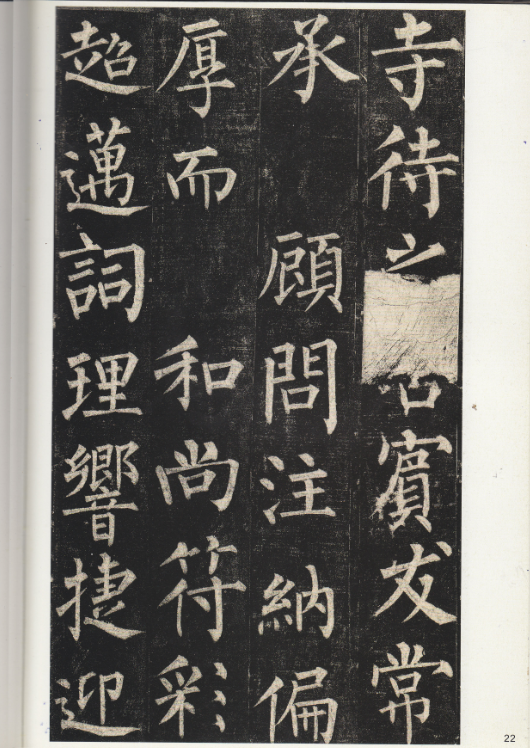 寺待之若賓友常
承顧問注納偏
厚而和尚符彩
超邁詞理響捷迎
22